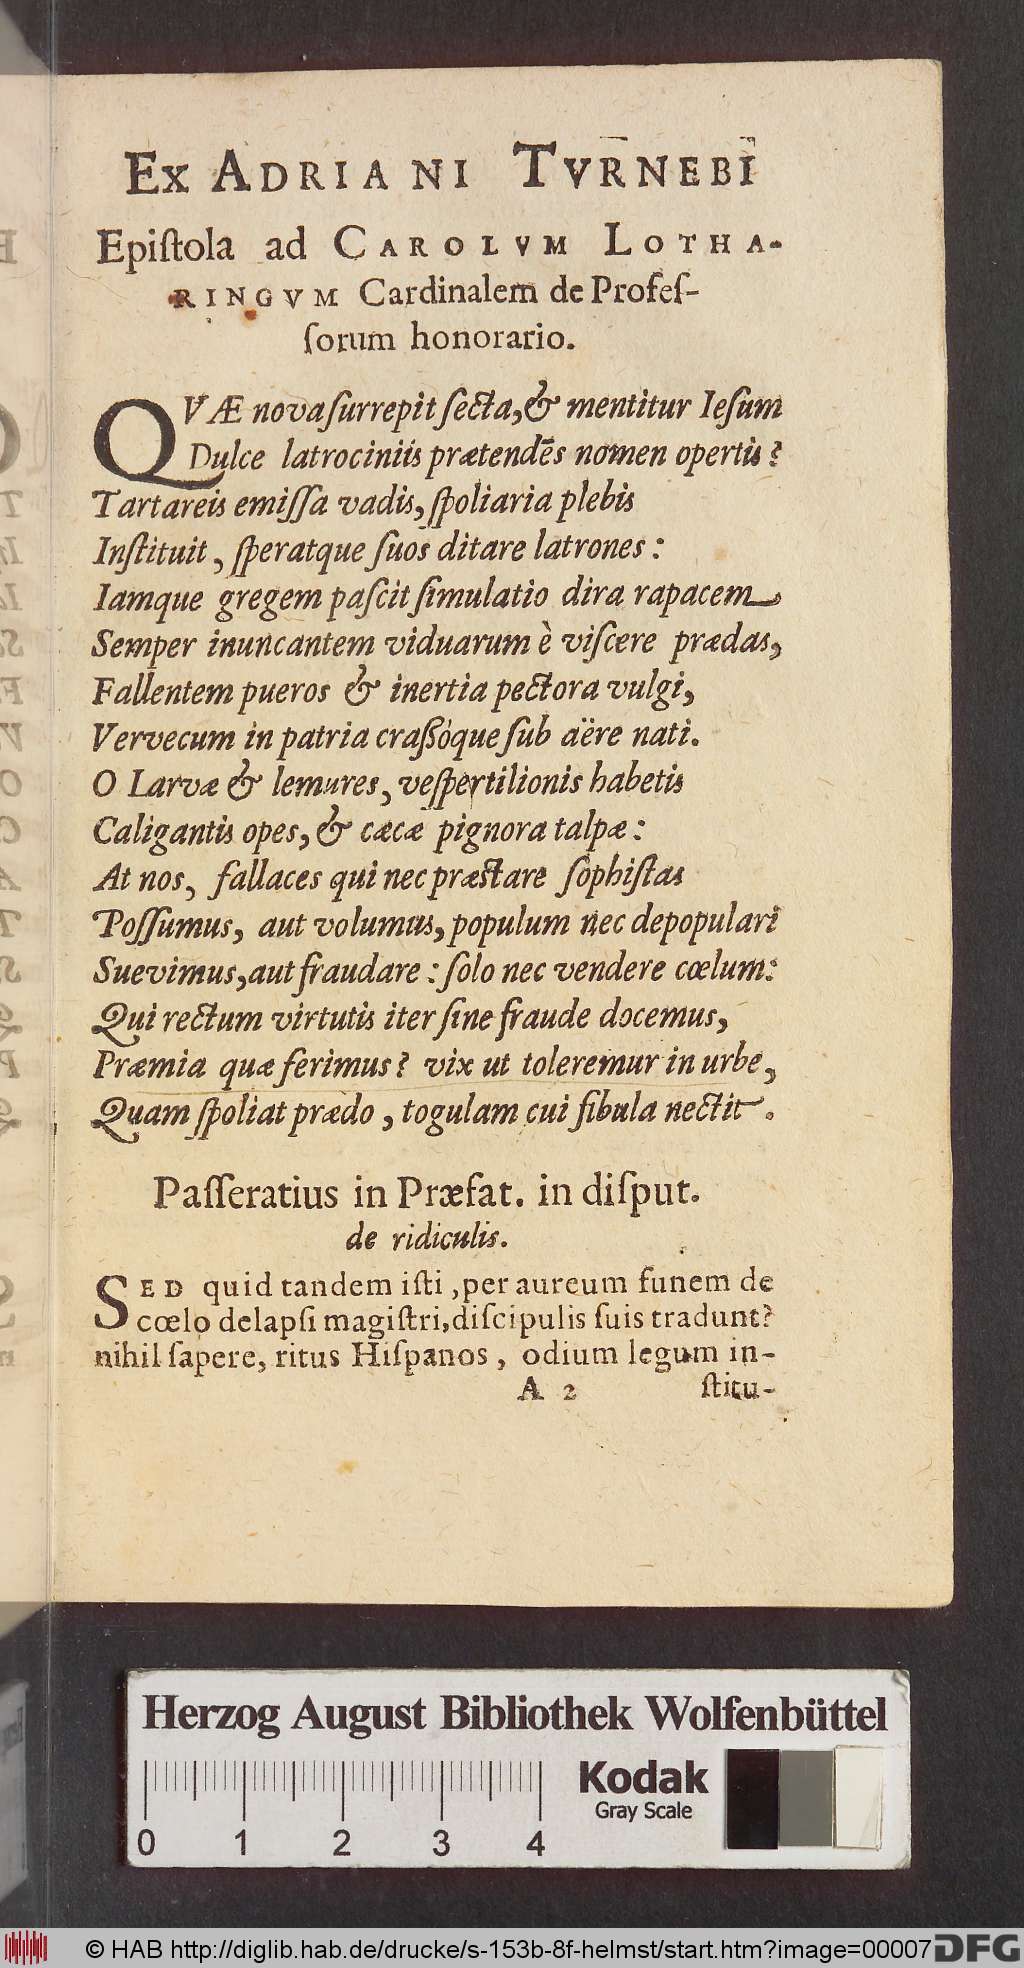 EX ADRIANI TVRNEBI
Epiſtola ad CAROLVM LOTHA-
RINGVM Cardinalem de Profeſ-
ſorum honorario.
QVÆ nova ſurrepit ſecta, & mentitur Ieſum
Dulce latrociniis prætendẽs nomen opertis?
Tartareis emiſſa vadis, ſpoliaria plebis
Inſtituit, ſperatque ſuos ditare latrones:
Iamque gregem paſcit ſimulatio dira rapacem
Semper inuncantem viduarum è viſcere prædas,
Fallentem pueros & inertia pectora vulgi,
Vervecum in patria craßóque ſub aëre nati.
O Larvæ & lemures, veſpertilionis habetis
Caligantis opes, & cæcæ pignora talpæ:
At nos, fallaces qui nec præſtare ſophiſtas
Poſſumus, aut volumus, populum nec depopulari
Suevimus, aut fraudare: ſolo nec vendere cœlum:
Qui rectum virtutis iter ſine fraude docemus,
Præmia quæ ferimus? vix ut toleremur in urbe,
Quam ſpoliat prædo, togulam cui fibula nectit.
Paſſeratius in Præfat. in diſput.
de ridiculis.
SED quid tandem iſti, per aureum funem de
cœlo delapſi magiſtri, diſcipulis ſuis tradunt?
nihil ſapere, ritus Hiſpanos, odium legum in-
A 2 ſtitu-
Herzog August Bibliothek Wolfenbüttel
Kodak
Gray Scale
0 1 2 3 4
© HAB http://diglib.hab.de/drucke/s-153b-8f-helmst/start.htm?image=00007 DFG